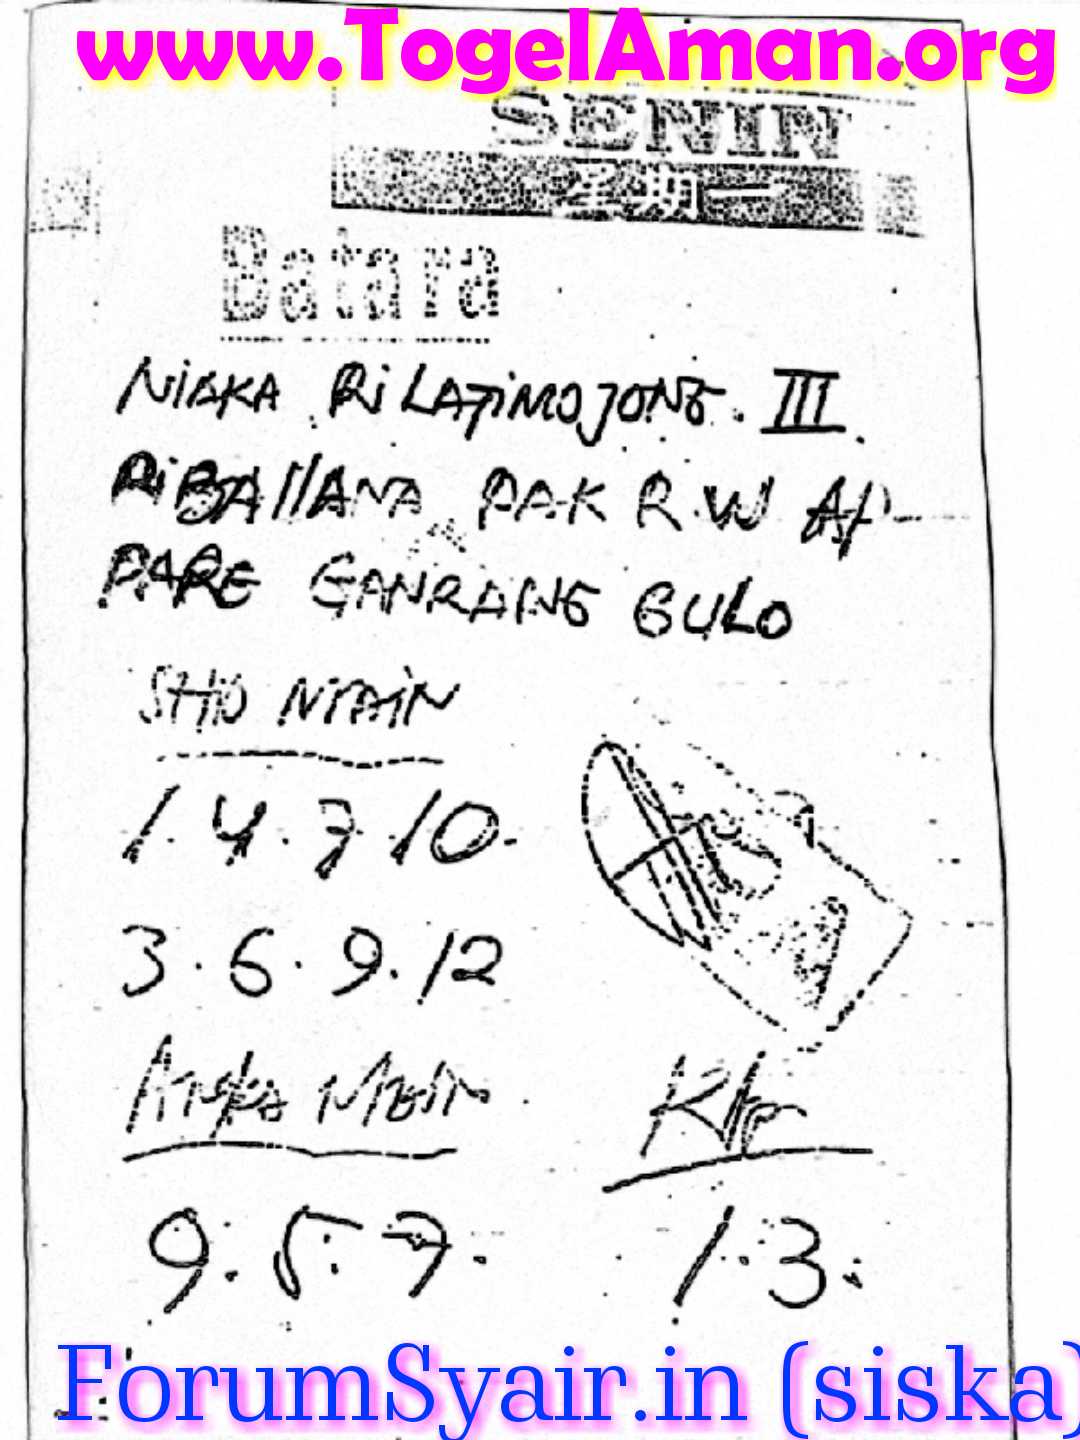 www.TogelAman.org
SENIN
星期一
Batara
NiAKA Ri LATiMOJONG. III.
Ri BAllANA PAK R.W AP-
PARE GANRANG GULO
SHIO
1. 4. 7. 10.
3. 6. 9. 12
ANGKA MAIN
9. 5. 7.
1. 3.
ForumSyair.in (siska)